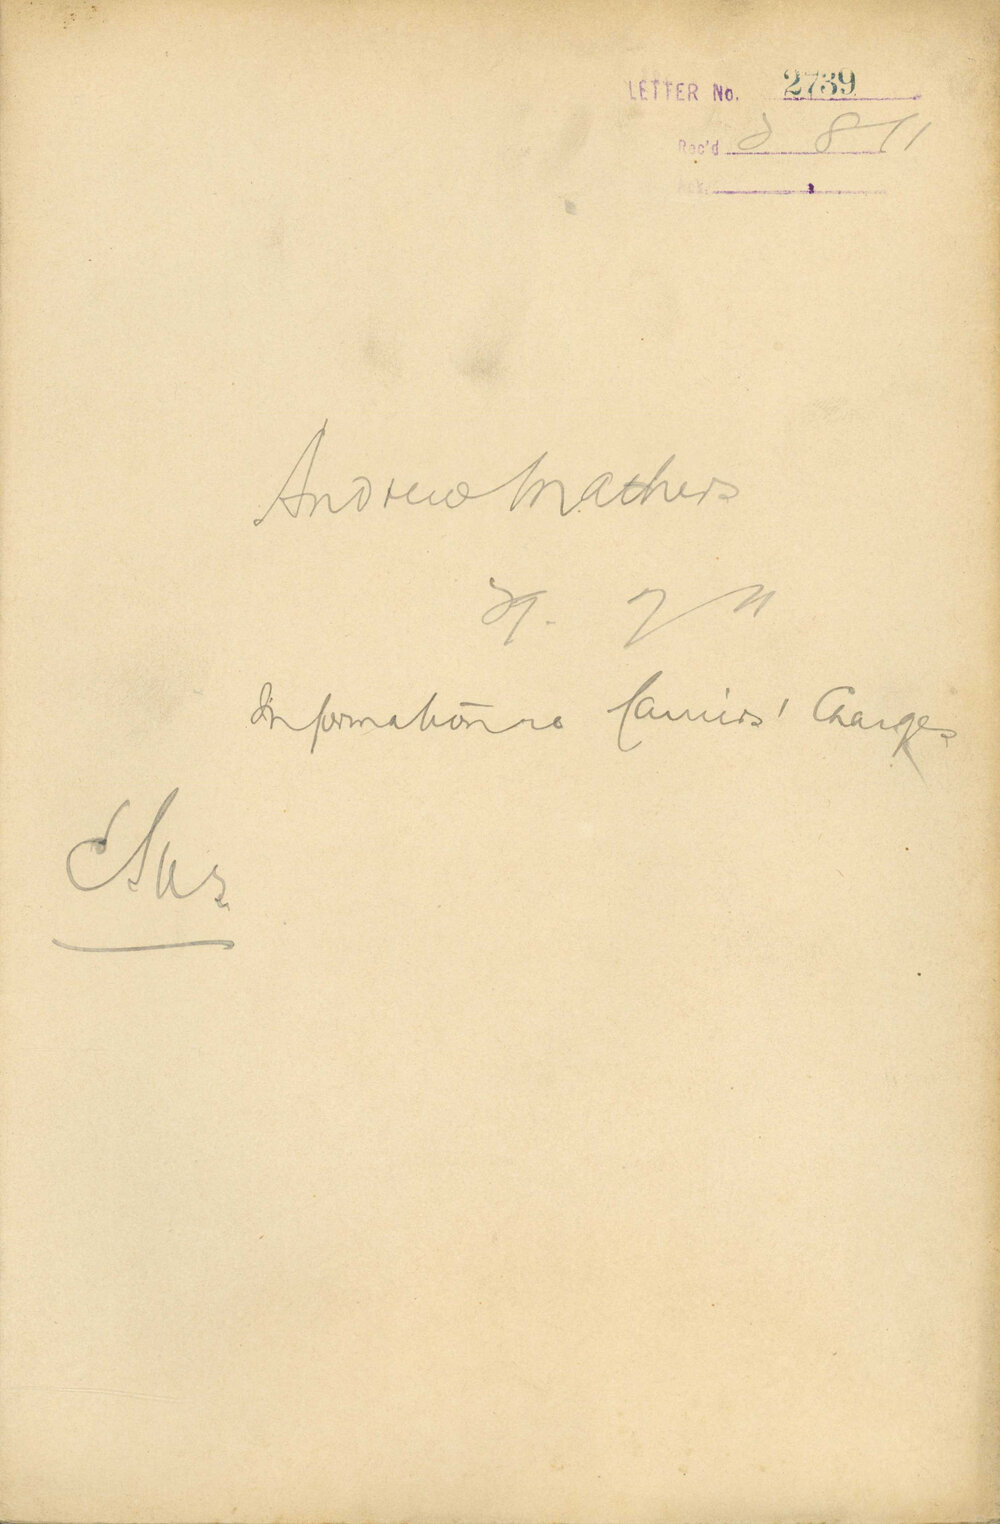 LETTER No. 2739
Rec'd 2 8 11
Ack.
Andrew Mathers
29. 7 11
Information re Carriers' Charges